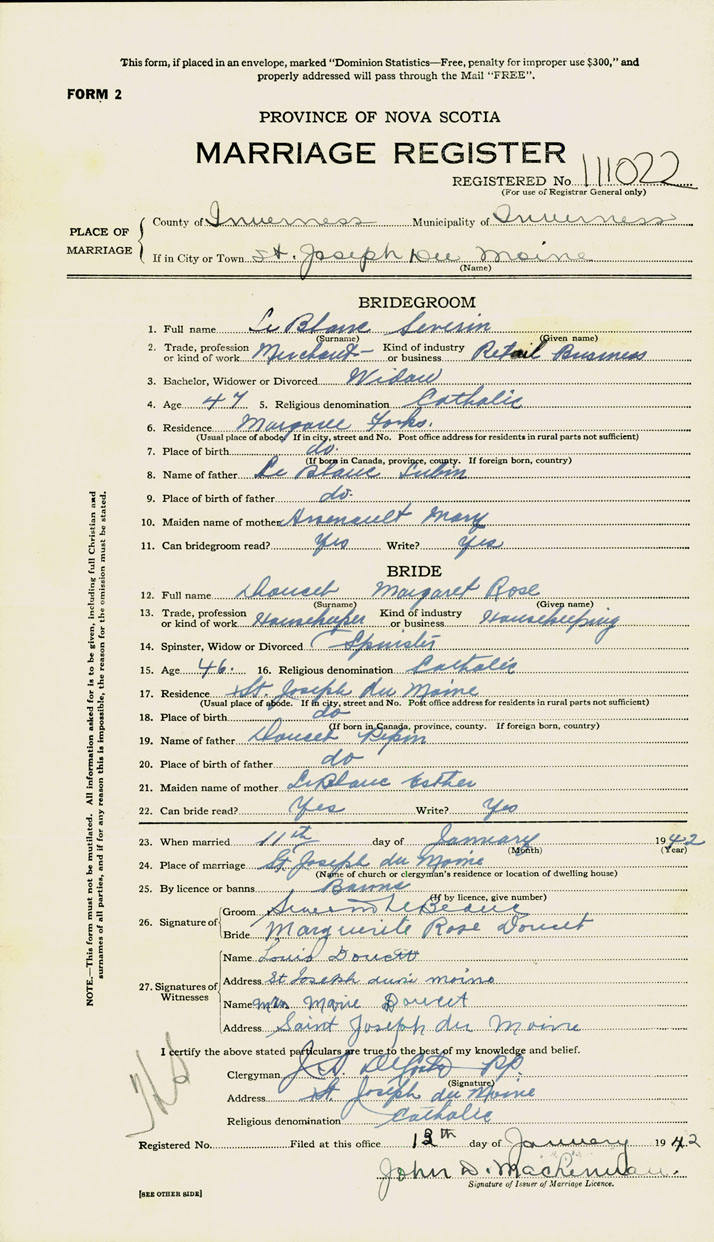 This form, if placed in an envelope, marked "Dominion Statistics—Free, penalty for improper use $300," and
properly addressed will pass through the Mail "FREE".
FORM 2
PROVINCE OF NOVA SCOTIA
MARRIAGE REGISTER
REGISTERED No. 111022
(For use of Registrar General only)
PLACE OF MARRIAGE
County of Inverness Municipality of Inverness
If in City or Town St. Joseph Du Moine
(Name)
BRIDEGROOM
1. Full name Le Blanc Severin
(Surname) (Given name)
2. Trade, profession or kind of work Merchant Kind of industry or business Retail Business
3. Bachelor, Widower or Divorced Widow
4. Age 47 5. Religious denomination Catholic
6. Residence Margaree Forks.
(Usual place of abode. If in city, street and No. Post office address for residents in rural parts not sufficient)
7. Place of birth do.
(If born in Canada, province, county. If foreign born, country)
8. Name of father Le Blanc Lubin
9. Place of birth of father do.
10. Maiden name of mother Arsenault Mary
11. Can bridegroom read? Yes Write? Yes
BRIDE
12. Full name Doucet Margaret Rose
(Surname) (Given name)
13. Trade, profession or kind of work Housekeeper Kind of industry or business Housekeeping
14. Spinster, Widow or Divorced Spinster
15. Age 46. 16. Religious denomination Catholic
17. Residence St. Joseph du Moine
(Usual place of abode. If in city, street and No. Post office address for residents in rural parts not sufficient)
18. Place of birth do
(If born in Canada, province, county. If foreign born, country)
19. Name of father Doucet Pepin
20. Place of birth of father do
21. Maiden name of mother LeBlanc Esther
22. Can bride read? Yes Write? Yes
23. When married 11th day of January 1942
(Month) (Year)
24. Place of marriage St Joseph du Moine
(Name of church or clergyman's residence or location of dwelling house)
25. By licence or banns Banns
(If by licence, give number)
26. Signature of
Groom Severin LeBlanc
Bride Marguerite Rose Doucet
27. Signatures of Witnesses
Name Louis Doucet
Address St Joseph moine
Name Mrs Marie Doucet
Address Saint Joseph du Moine
I certify the above stated particulars are true to the best of my knowledge and belief.
Clergyman P.P.
(Signature)
Address St. Joseph du Moine
Religious denomination Catholic
Registered No. Filed at this office 13th day of January 1942
John D. MacLennan.
Signature of Issuer of Marriage Licence.
[SEE OTHER SIDE]
NOTE.—This form must not be mutilated. All information asked for is to be given, including full Christian and
surnames of all parties, and if for any reason this is impossible, the reason for the omission must be stated.